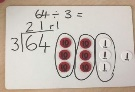 64 ÷ 3 =
21r1
3 64
10 10 1
10 10 1
10 10 1
1